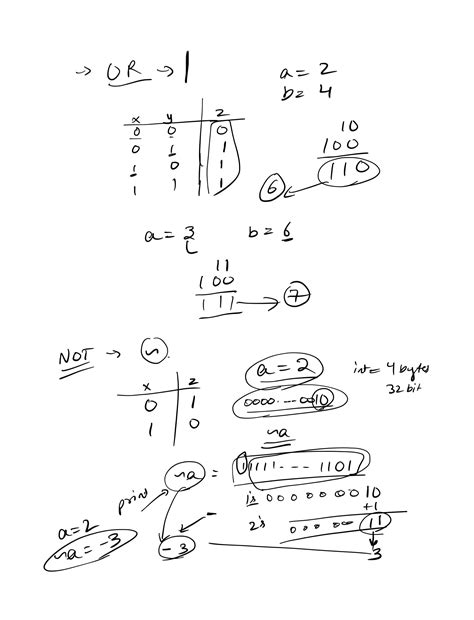 → OR → |
a = 2
b = 4
x y z
0 0 0
0 1 1
1 0 1
1 1 1
10
100
110
6
a = 3 b = 6
11
100
111 → 7
NOT → ~
a = 2 int = 4 bytes
32 bit
x z
0 1
1 0
0000----0010
~a
~a = 11111---1101
print
1's 0000000010
+1
2's 0000011
a = 2
~a = -3
-3
3